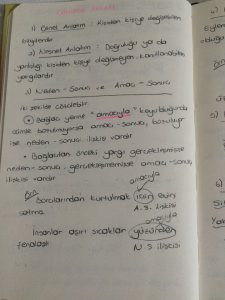 Cümlede Anlam
1) Öznel Anlatım: Kişiden kişiye değişebilen
bilgilerdir
2) Nesnel Anlatım: Doğruluğu ya da
yanlışlığı kişiden kişiye değişmeyen, kanıtlanabilen
yargılardır.
3) Neden-Sonuç ve Amaç-Sonuç
iki şekilde çözülebilir.
• Bağlaç yerine "amacıyla" koyulduğunda
cümle bozulmuyorsa amaç-sonuç, bozuluyor
ise neden-sonuç ilişkisi vardır.
• Bağlaçtan önceki yargı gerçekleşmişse
neden-sonuç, gerçekleşmemişse amaç-sonuç
ilişkisi vardır
amacıyla
Örn: Borçlarından kurtulmak için evini
satmış. A.S. ilişkisi
amacıyla
İnsanlar aşırı sıcaklar yüzünden
fenalaştı N.S ilişkisi